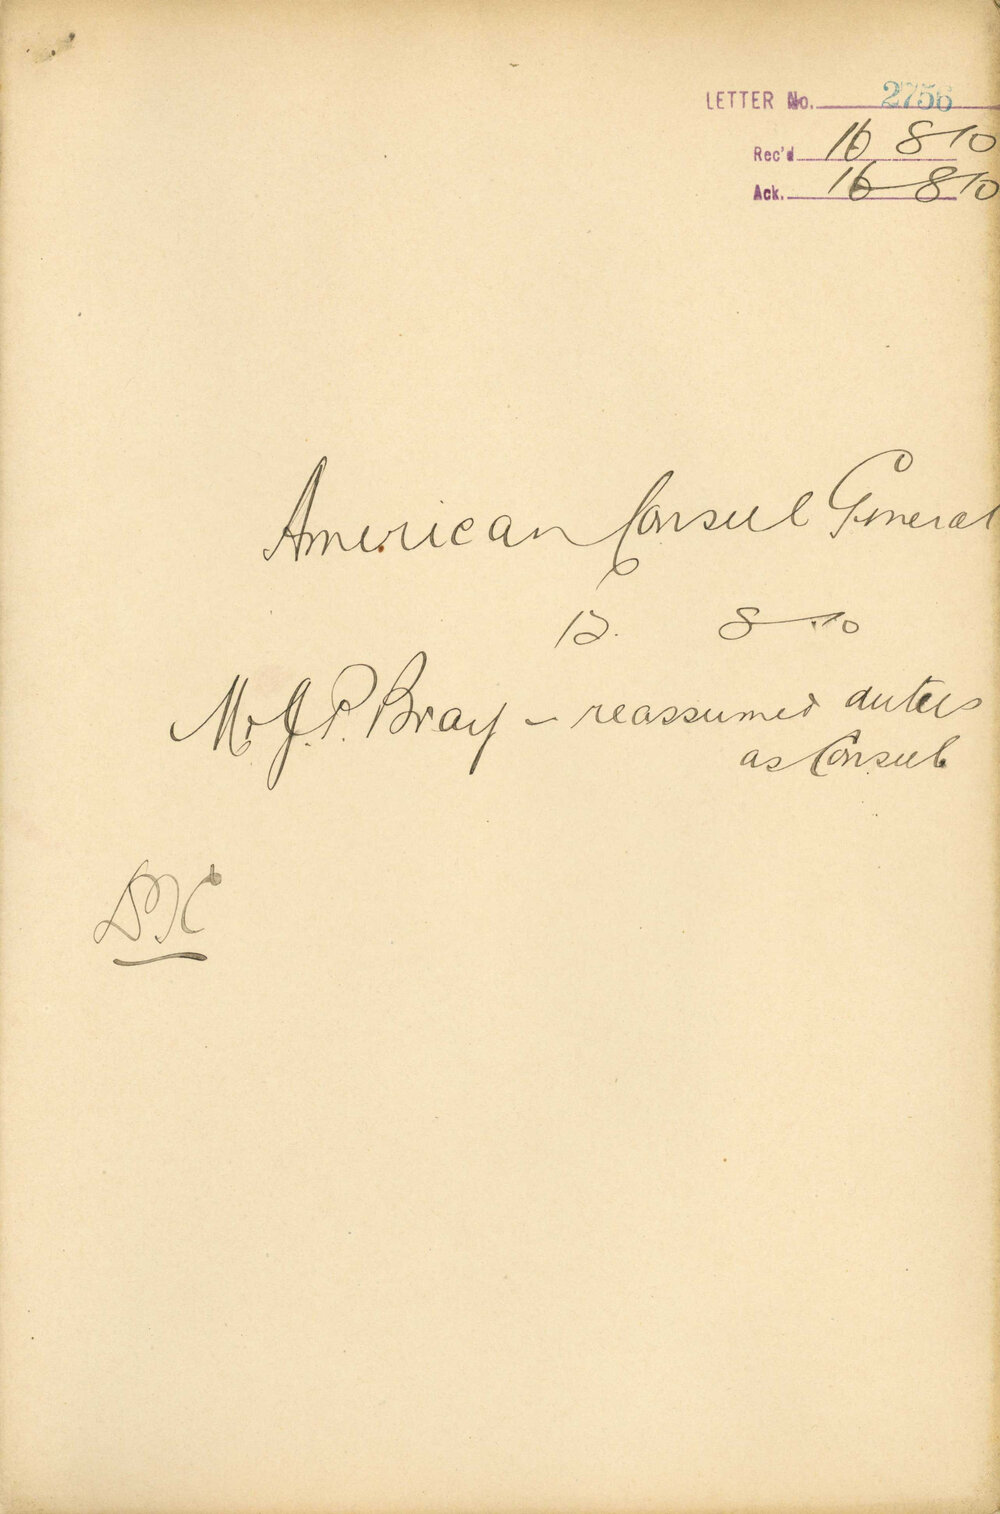 LETTER No. 2756
Rec'd 16 8 10
Ack. 16 8 10
American Consul General
12. 8 10
Mr J. P. Bray - reassumed duties
as Consul